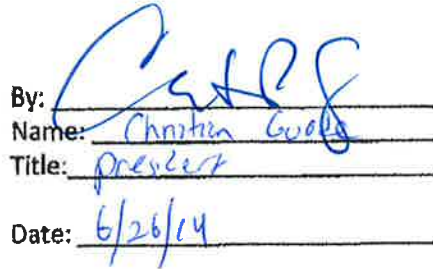 By:
Name: Christian
Title: president
Date: 6/26/14